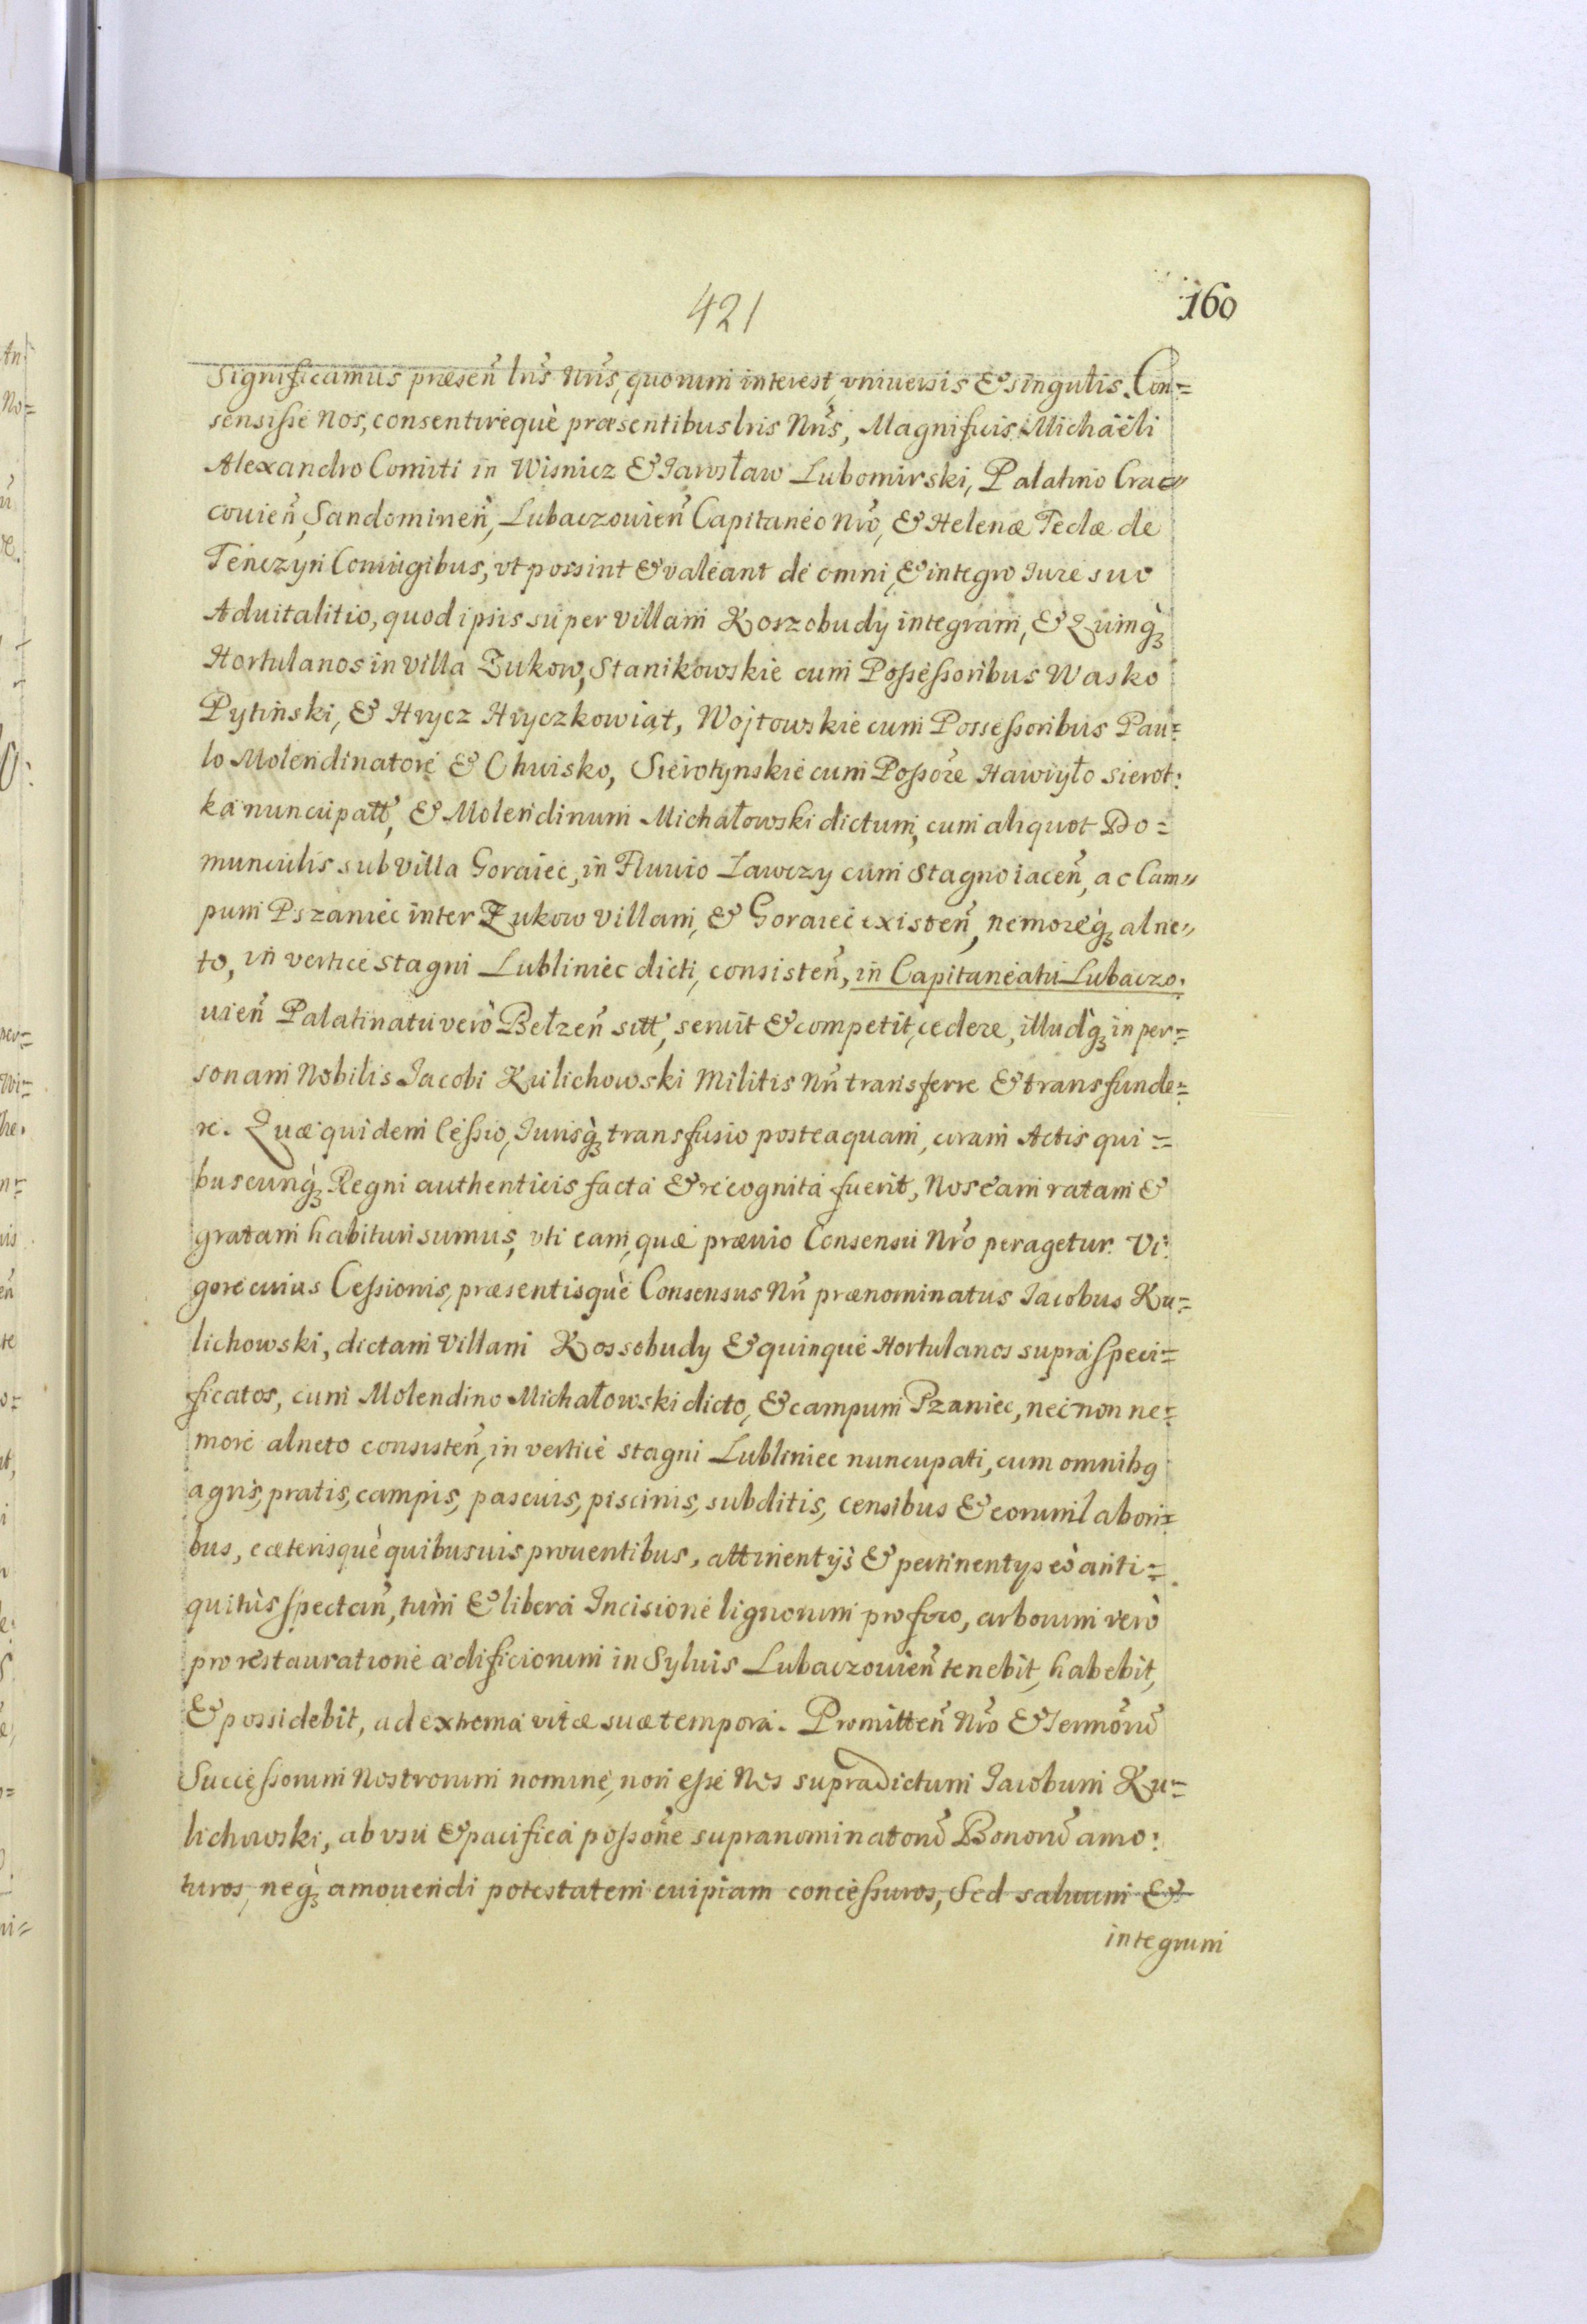 421
160
Significamus præsen̄ lr̄is Nr̄is, quorum interest, vniuersis & singulis. Con=
sensisse nos, consentirequè præsentibus lris Nr̄is, Magnificis Michaëli
Alexandro Comiti in Wisnicz & Iarosław Lubomirski, Palatino Crac=
couien̄, Sandomirien̄, Lubaczouien̄ Capitaneo Nr̄o, & Helenæ Teclæ de
Tenczyn Coniugibus, vt possint & valeant de omni, & integro Iure suo
Aduitalitio, quod ipsis super villam Koszobudy integram, & Quinq̀ꝫ
Hortulanos in villa Żukow, Stanikowskie cum Possessoribus Wasko
Pytinski, & Hrycz Hryczkowiąt, Wojtowskie cum Possessoribus Pau=
lo Molendinatore & Chwisko, Sierotynskie cum Possor̄e Hawryło Sierot:
ka nuncupatt̄, & Molendinum Michałowski dictum, cum aliquot Do=
munculis sub villa Goraiec, in Fluuio Lawczy cum Stagno iacen̄, ac Cam=
pum Pszaniec inter Żukow villam, & Goraiec existen̄, nemoreq̀ꝫ alne=
to, in vertice stagni Lubliniec dicti, consisten̄, in Capitaneatu Lubaczo:
uien̄ Palatinatu verò Bełzen̄ sitt̄, seruit & competit, cedere, illudq̀ꝫ in per=
sonam Nobilis Iacobi Kulichowski Militis Nr̄i transferre & transfunde=
re. Quæ quidem Cessio, Iurisq̀ꝫ transfusio posteaquam, coram Actis qui=
buscunq̀ꝫ Regni authenticis facta & recognita fuerit, Nos eam ratam &
gratam habituri sumus, vti eam, quæ præuio Consensu Nr̄o peragetur. Vi:
gore cuius Cessionis, præsentisquè Consensus Nr̄i prænominatus Iacobus Ku=
lichowski, dictam Villam Kossobudy & quinque Hortulanos supra speci=
ficatos, cum Molendino Michałowski dicto, & campum Pzaniec, nec non ne=
more alneto consisten̄, in vertice stagni Lubliniec nuncupati, cum omnibꝫ
agris, pratis, campis, pascuis, piscinis, subditis, censibus & eorum labori=
bus, cæterisquè quibusuis prouentibus, attinentijs & pertinentijs eò anti=
quitùs spectan̄, tùm & libera Incisione lignorum pro foco, arborum verò
pro restauratione ædificiorum in Syluis Lubaczouien̄ tenebit, habebit,
& possidebit, ad extrema vitæ suæ tempora. Promitten̄ Nr̄o & Sermōrū
Successorum Nostrorum nomine, non esse Nos supradictum Iacobum Ku=
lichowski, ab vsu & pacifica possōne supranominatorū Bonorū amo:
turos, neq̀ꝫ amouendi potestatem cuipiam concessuros, Sed saluum &
integrum